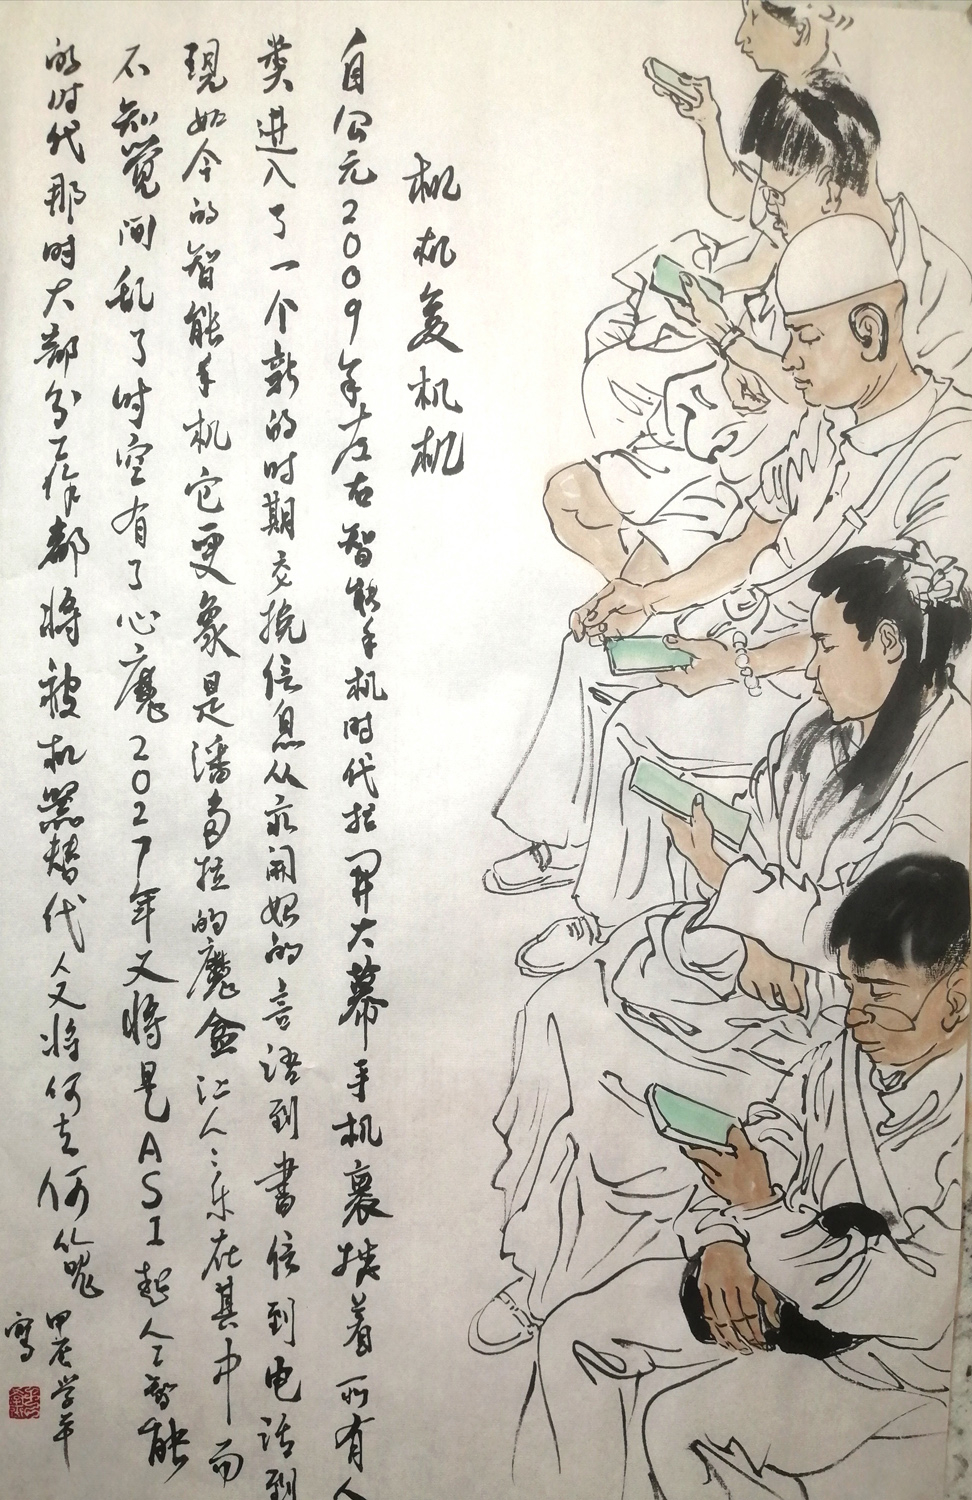 机机复机机
自公元2009年左右智能手机时代拉開大幕手机裹挟着所有人
类进入了一个新的时期交换信息从最開始的言语到書信到电话到
現如今的智能手机它更象是潘多拉的魔盒让人人乐在其中而
不知觉间乱了时空有了心魔2027年又将是ASI超人工智能
的时代那时大部分工作都将被机器替代人又将何去何从呢
甲辰学平
寫